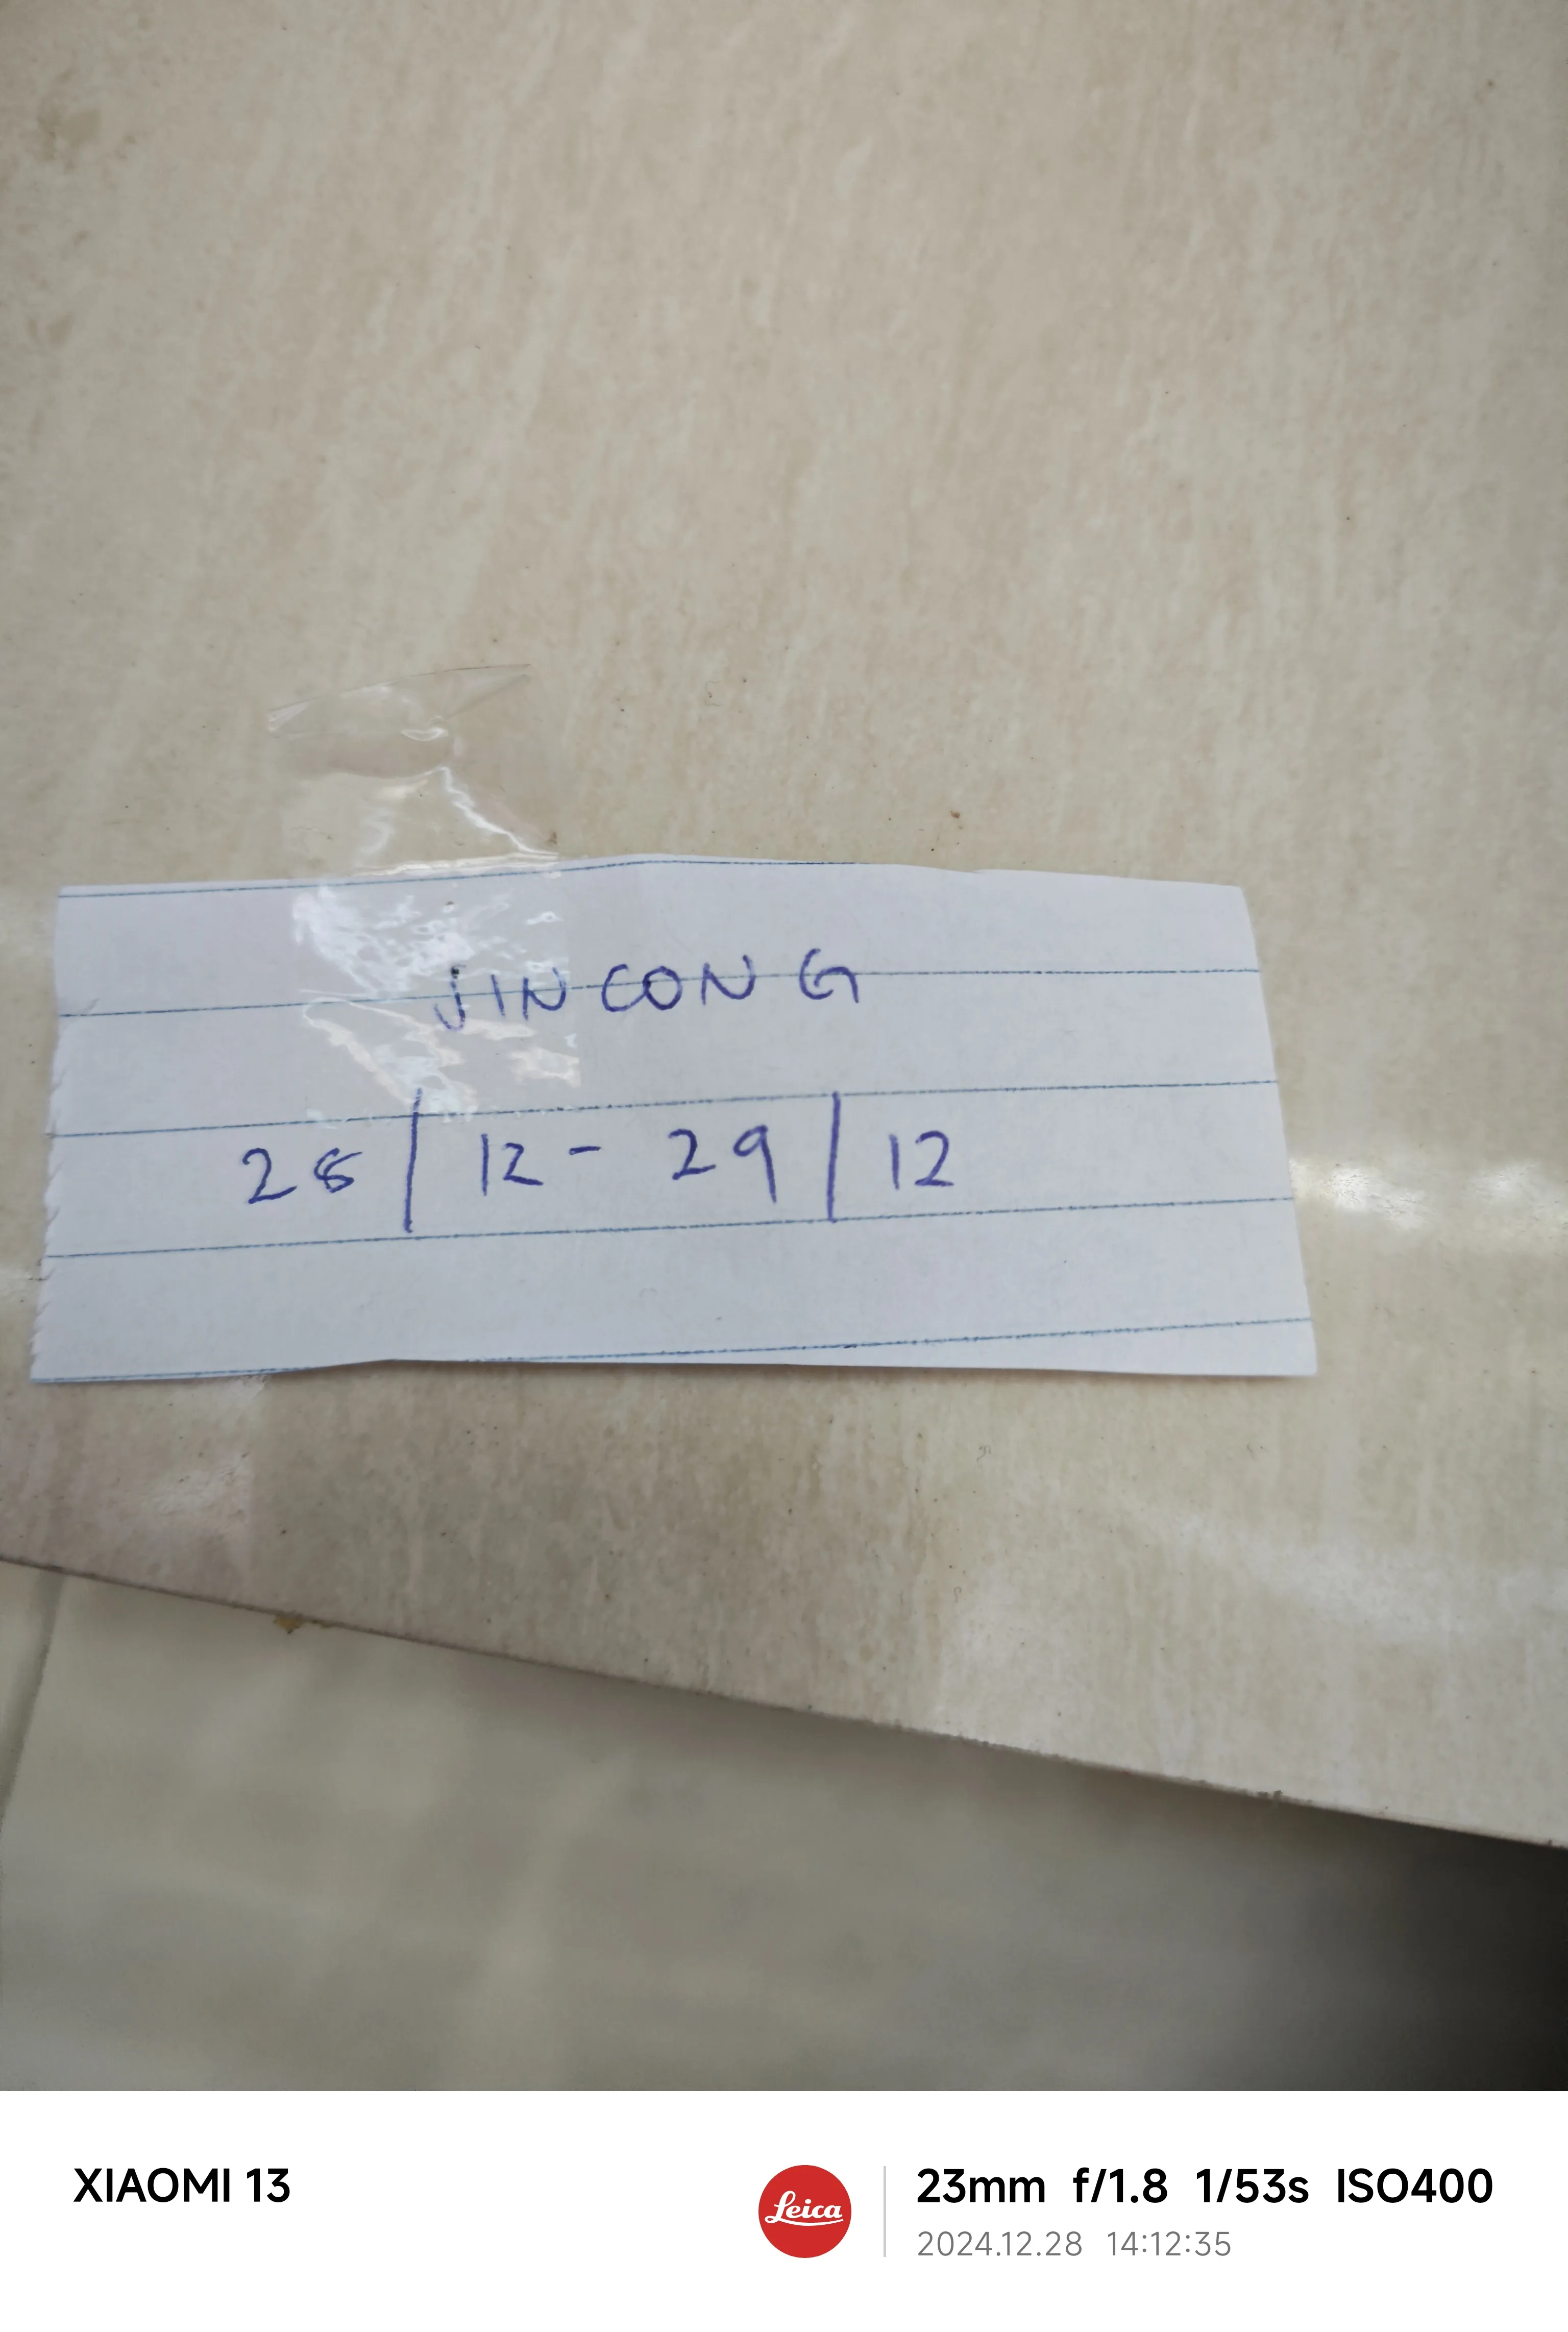 JINCONG
28/12 - 29/12
XIAOMI 13
Leica
23mm f/1.8 1/53s ISO400
2024.12.28 14:12:35